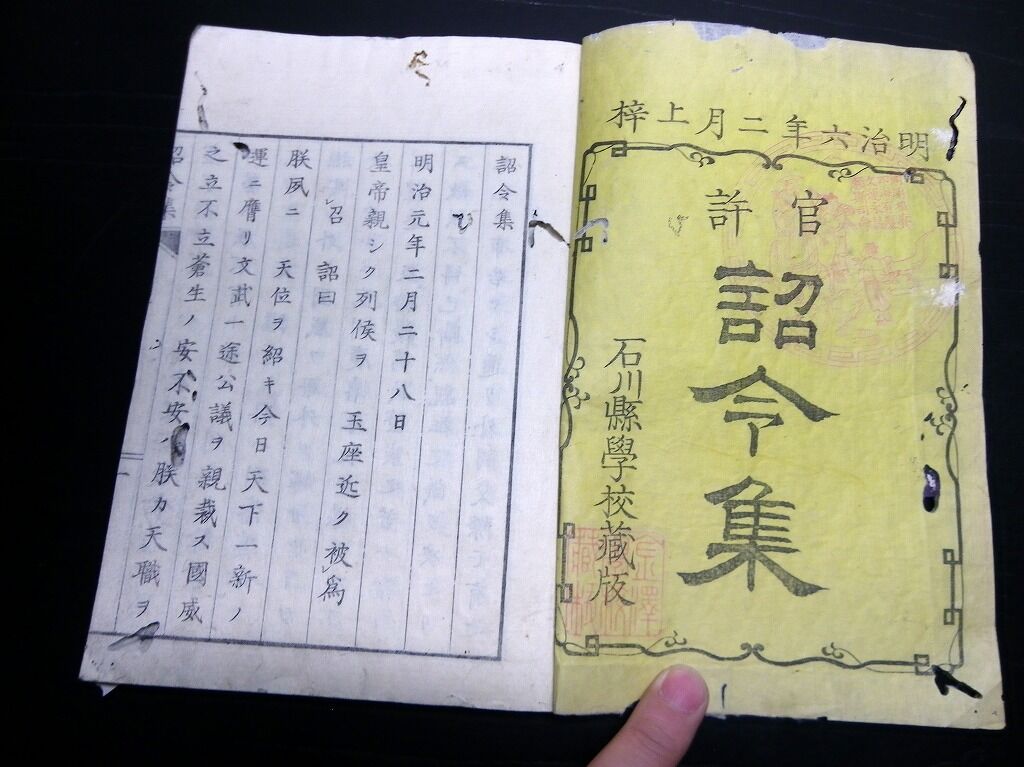 明治六年二月上梓
官許
詔令集
石川縣學校藏版
詔令集
明治元年二月二十八日
皇帝親シク列侯ヲ 玉座近ク被爲
召 詔曰
朕夙ニ 天位ヲ紹キ今日天下一新ノ
運ニ膺リ文武一途公議ヲ親裁ス國威
之立不立蒼生ノ安不安ハ朕カ天職ヲ
詔令集